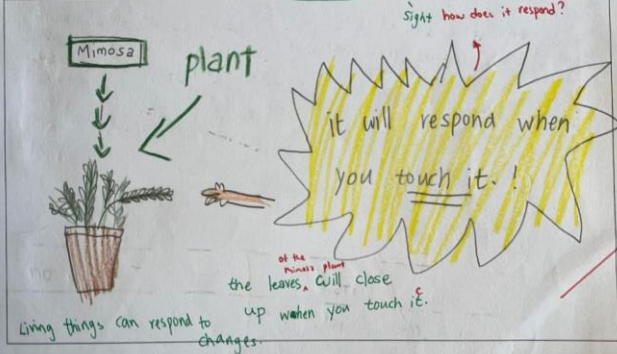 sight how does it respond?
Mimosa
plant
it will respond when
you touch it. !
of the
mimosa plant
the leaves, will close
up when you touch it.
Living things can respond to
changes.